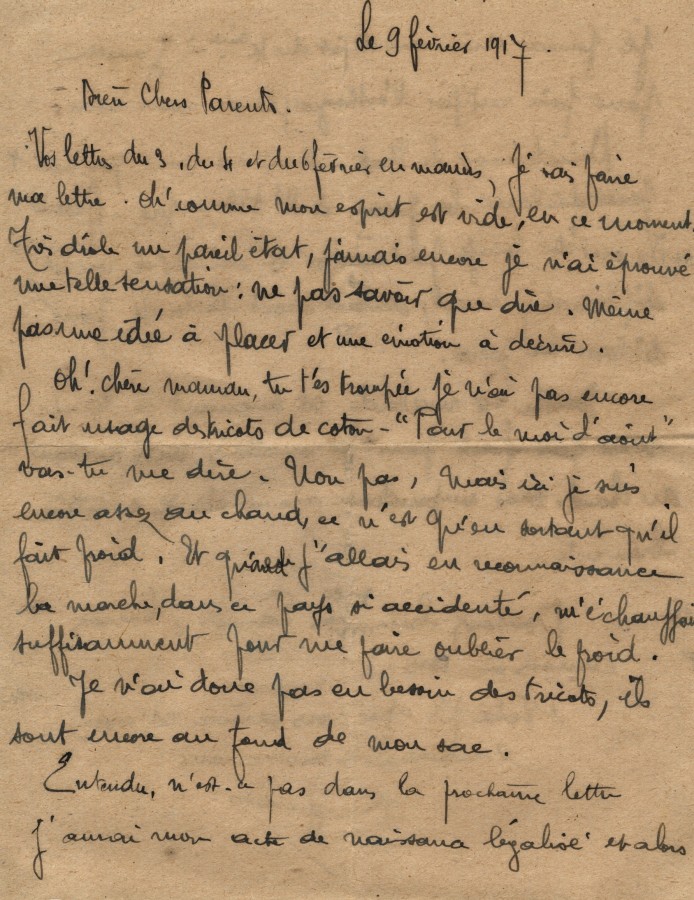 Le 9 février 1917.
Bien Chers Parents.
Vos lettres du 3, du 4 et du 6 février en mains, je vais faire
ma lettre. Oh! comme mon esprit est vide, en ce moment.
Très drôle un pareil état, jamais encore je n'ai éprouvé
une telle sensation: ne pas savoir que dire. Même
pas une idée à placer et une émotion à décrire.
Oh! chère maman, tu t'es trompée je n'ai pas encore
fait usage des tricots de coton - "Pour le moi d'août"
vas-tu me dire. Non pas, mais ici je suis
encore assez au chaud, ce n'est qu'en sortant qu'il
fait froid. Et quand j'allais en reconnaissance
la marche, dans ce pays si accidenté, m'échauffai
suffisamment pour me faire oublier le froid.
Je n'ai donc pas eu besoin des tricots, ils
sont encore au fond de mon sac.
Entendu, n'est-ce pas dans la prochaine lettre
j'aurai mon acte de naissance légalisé et alors